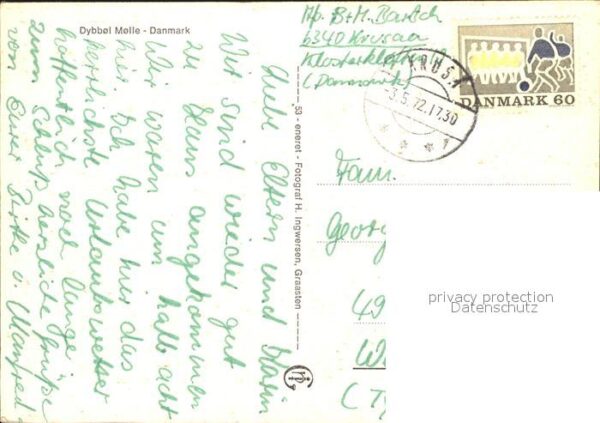 Dybbøl Mølle - Danmark
Liebe Eltern und
Wir sind wieder gut
zu Haus angekommen
Wir waren um halb acht
hier. Ich habe hier das
herrlichste Urlaubswetter
hoffentlich noch lange
zum Schluß herzliche Grüße
von Eurer u. Manfred
53 - eneret - Fotograf H. Ingwersen, Graasten
B+M. Bartsch
6340 Krusaa
(Danmark)
KRUSÅ
-3.5.72.17.30
DANMARK 60
Fam.
Georg
49
W
(T
privacy protection
Datenschutz